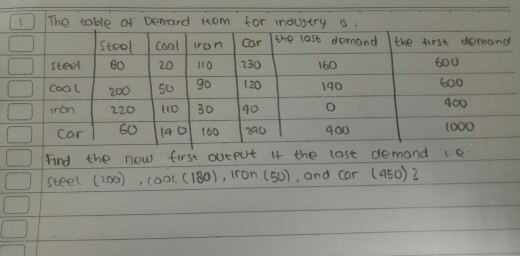 1 The table of Demand item for industry is.
Steel coal iron car the last demand the first demand
steel 80 20 110 230 160 600
coal 200 50 90 120 140 600
iron 220 110 30 40 0 400
Car 60 140 160 240 400 1000
Find the now first output if the last demand i.e.
Steel (200), coal (180), iron (50), and car (450)?